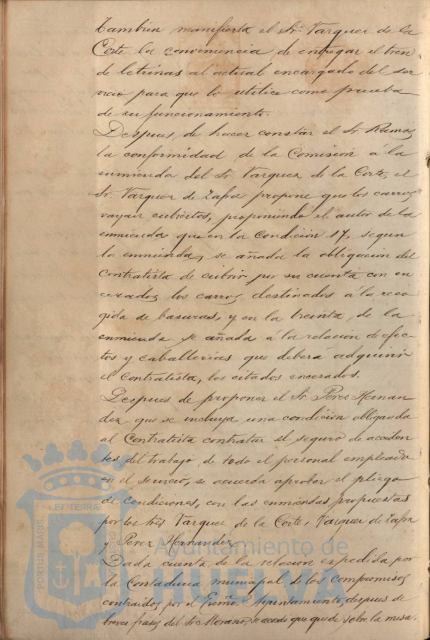 tambien manifiesta el Sr. Vazquez de la
Corte la conveniencia de entregar el tren
de letrinas al actual encargado del ser
vicio para que lo utilice como prueba
de su funcionamiento.
Despues de hacer constar el Sr. Ramos
la conformidad de la Comision á la
enmienda del Sr. Vazquez de la Corte, el
Sr. Vazquez de Zafra propone que los carros
vayan cubiertos, proponiendo el autor de la
enmienda que en la Condicion 17, segun
la enmienda, se añada la obligacion del
Contratista de cubrir por su cuenta con en
cerados los carros destinados á la reco
gida de basuras, y en la treinta de la
enmienda se añada á la relacion de efec
tos y caballerias que deberá adquirir
el Contratista, los citados encerados.
Despues de proponer el Sr. Perez Hernan
dez que se incluya una condicion obligando
al Contratista contratar el seguro de acciden
tes del trabajo de todo el personal empleado
en el servicio, se acuerda aprobar el pliego
de condiciones, con las enmiendas propuestas
por los Sres Vazquez de la Corte, Vazquez de Zafra
y Perez Hernandez.
Dada cuenta de la relacion expedida por
la Contaduria municipal de los compromisos
contraidos por el Excmo. Ayuntamiento, despues de
breves frases del Sr. Moreno, se acordó que quede sobre la mesa.
Ayuntamiento de
HUELVA